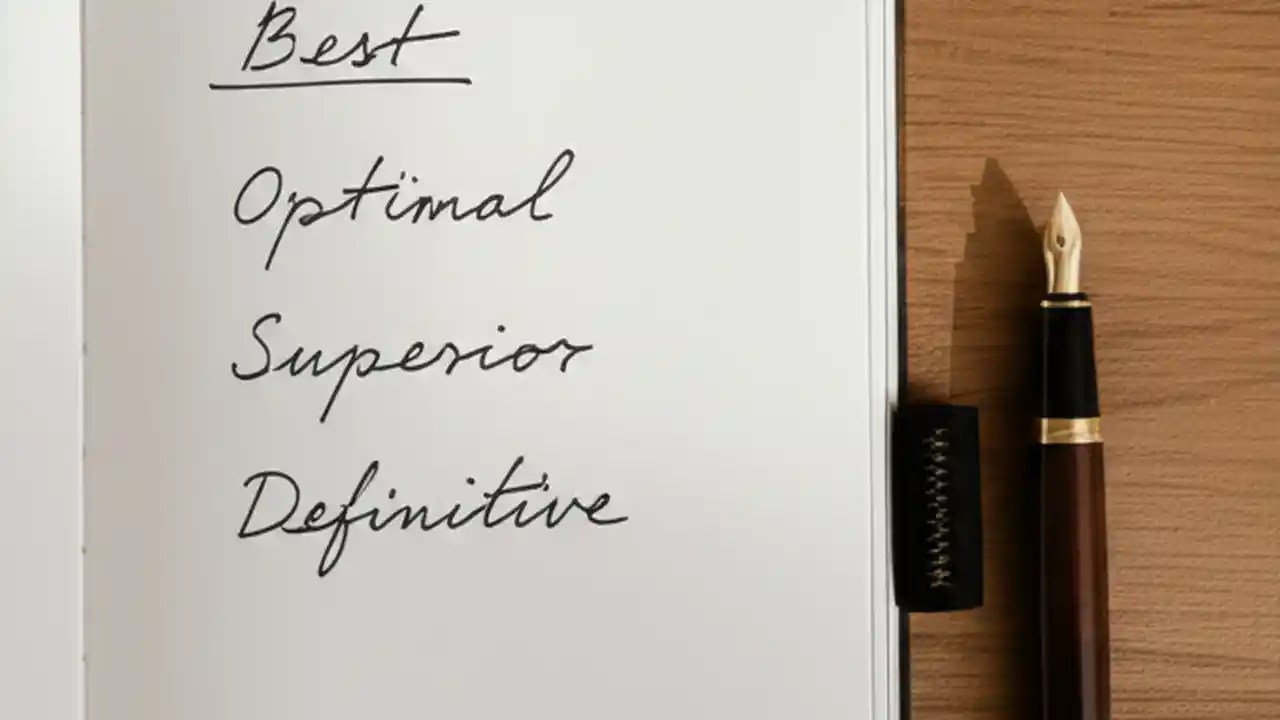 Best
Optimal
Superior
Definitive